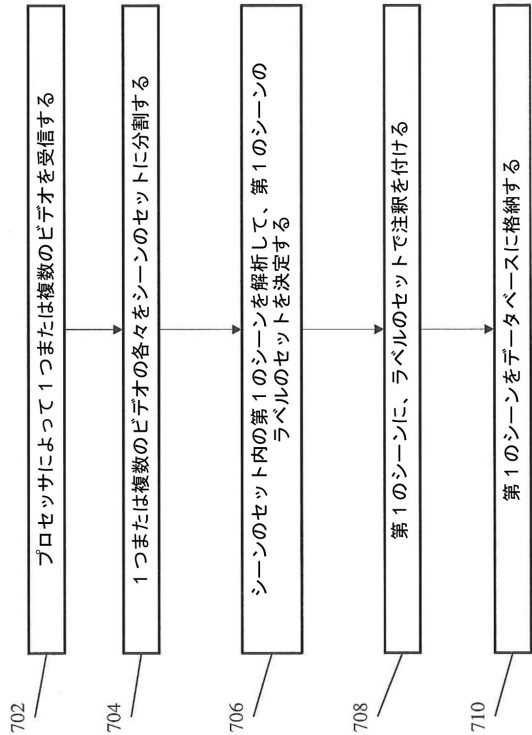 702
プロセッサによって１つまたは複数のビデオを受信する
704
１つまたは複数のビデオの各々をシーンのセットに分割する
706
シーンのセット内の第１のシーンを解析して、第１のシーンの
ラベルのセットを決定する
708
第１のシーンに、ラベルのセットで注釈を付ける
710
第１のシーンをデータベースに格納する